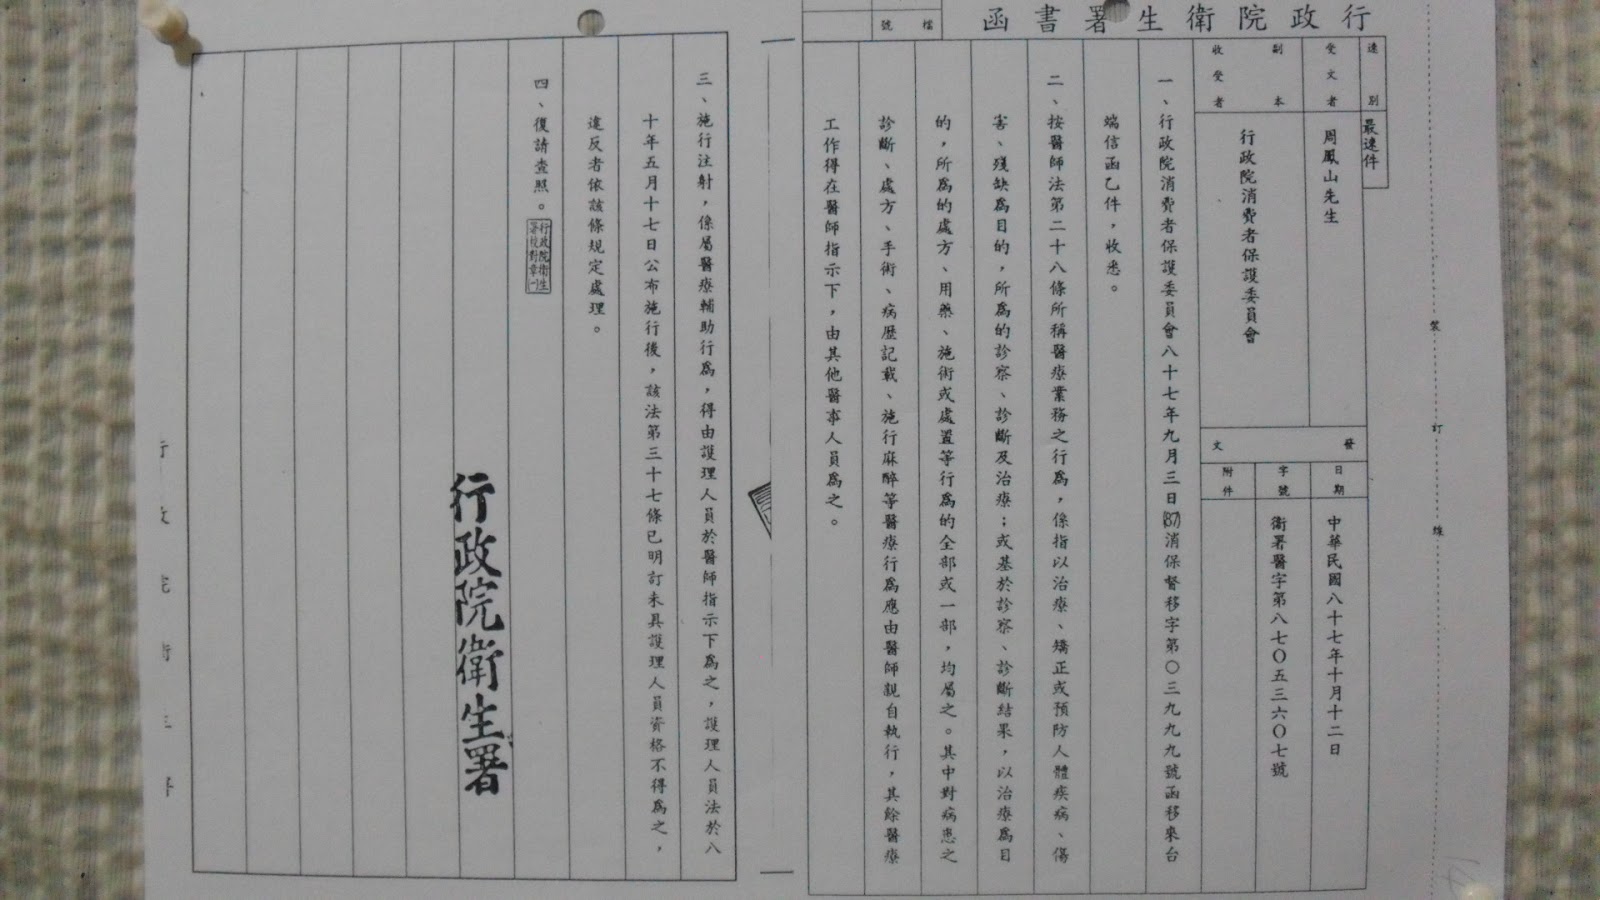 行政院衛生署書函
檔號
速別
最速件
受文者
周鳳山先生
副本收受者
行政院消費者保護委員會
發文
日期
中華民國八十七年十月十二日
字號
衛署醫字第八七〇五三六〇七號
附件
一、行政院消費者保護委員會八十七年九月三日(87)消保督移字第〇三九九九號函移來台
端信函乙件，收悉。
二、按醫師法第二十八條所稱醫療業務之行為，係指以治療、矯正或預防人體疾病、傷
害、殘缺為目的，所為的診察、診斷及治療；或基於診察、診斷結果，以治療為目
的，所為的處方、用藥、施術或處置等行為的全部或一部，均屬之。其中對病患之
診斷、處方、手術、病歷記載、施行麻醉等醫療行為應由醫師親自執行，其餘醫療
工作得在醫師指示下，由其他醫事人員為之。
裝
訂
線
三、施行注射，係屬醫療輔助行為，得由護理人員於醫師指示下為之，護理人員法於八
十年五月十七日公布施行後，該法第三十七條已明訂未具護理人員資格不得為之，
違反者依該條規定處理。
四、復請查照。
行政院衛生
署校對章(一)
行政院衛生署
行政院衛生署